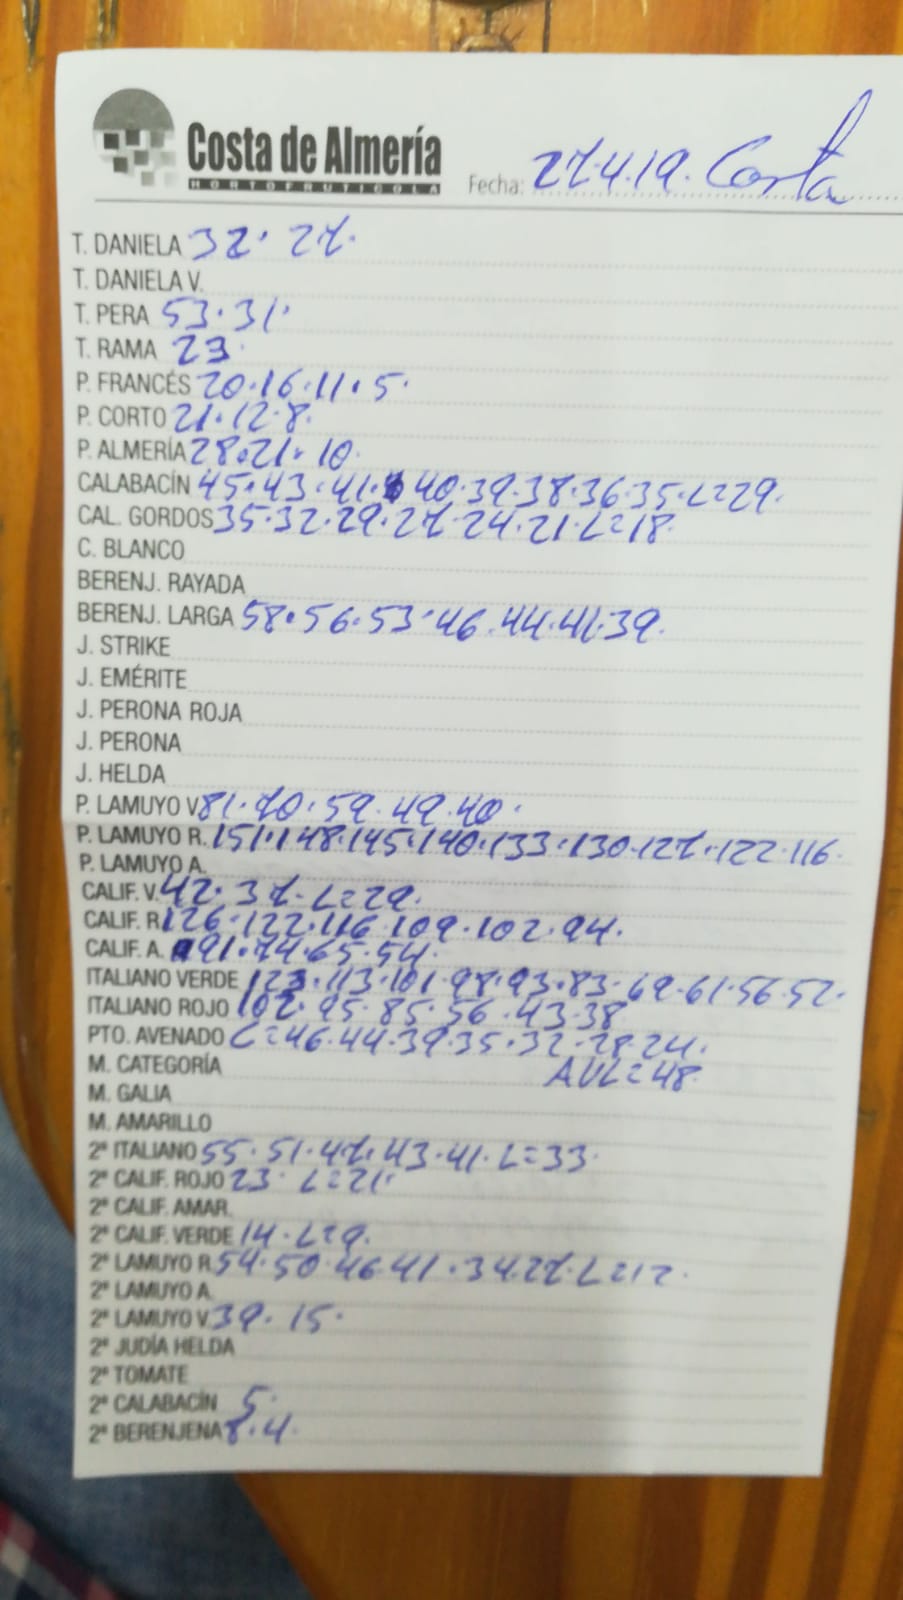 Costa de Almería
HORTOFRUTICOLA
Fecha: 27.4.19. Costa
T. DANIELA 32. 27.
T. DANIELA V.
T. PERA 53.31.
T. RAMA 23.
P. FRANCÉS 20.16.11.5.
P. CORTO 21.12.8.
P. ALMERÍA 28.21.10.
CALABACÍN 45.43.41. 40.39.38.36.35.L=29.
CAL. GORDOS 35.32.29.27.24.21.L=18.
C. BLANCO
BERENJ. RAYADA
BERENJ. LARGA 58.56.53.46.44.41.39.
J. STRIKE
J. EMÉRITE
J. PERONA ROJA
J. PERONA
J. HELDA
P. LAMUYO V. 81.70.59.49.40.
P. LAMUYO R. 151.148.145.140.133.130.127.122.116.
P. LAMUYO A.
CALIF. V. 42.37.L=29.
CALIF. R. 126.122.116.109.102.94.
CALIF. A. 91.74.65.54.
ITALIANO VERDE 123.113.101.98.93.83.69.61.56.52.
ITALIANO ROJO 102.95.85.56.43.38
PTO. AVENADO L=46.44.39.35.32.28.24.
M. CATEGORÍA AVL=48.
M. GALIA
M. AMARILLO
2ª ITALIANO 55.51.47.43.41.L=33.
2ª CALIF. ROJO 23. L=21.
2ª CALIF. AMAR.
2ª CALIF. VERDE 14.L=9.
2ª LAMUYO R. 54.50.46.41.34.27.L=12.
2ª LAMUYO A.
2ª LAMUYO V. 39. 15.
2ª JUDÍA HELDA
2ª TOMATE
2ª CALABACÍN 5.
2ª BERENJENA 8.4.